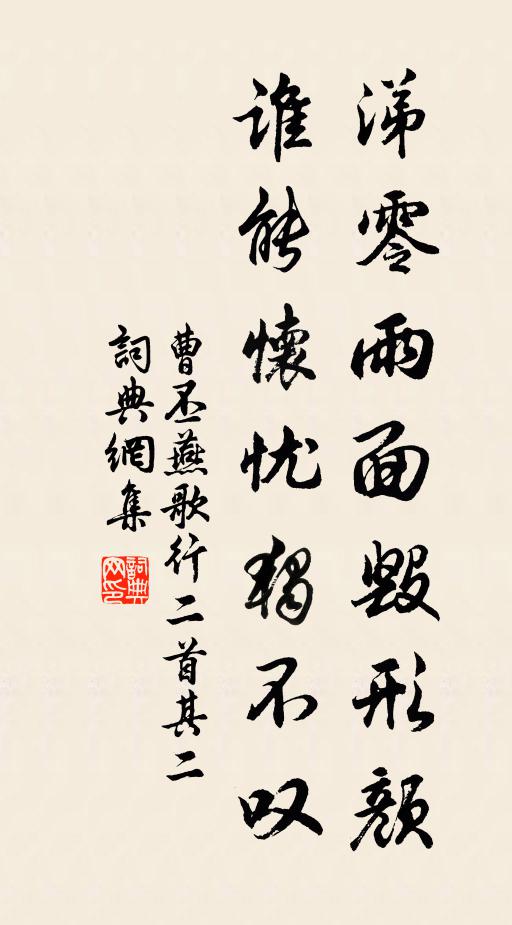 涕零雨面毀形顏
谁能懷忧獨不叹
曹丕燕歌行二首其二
詞典網集
詞典网印